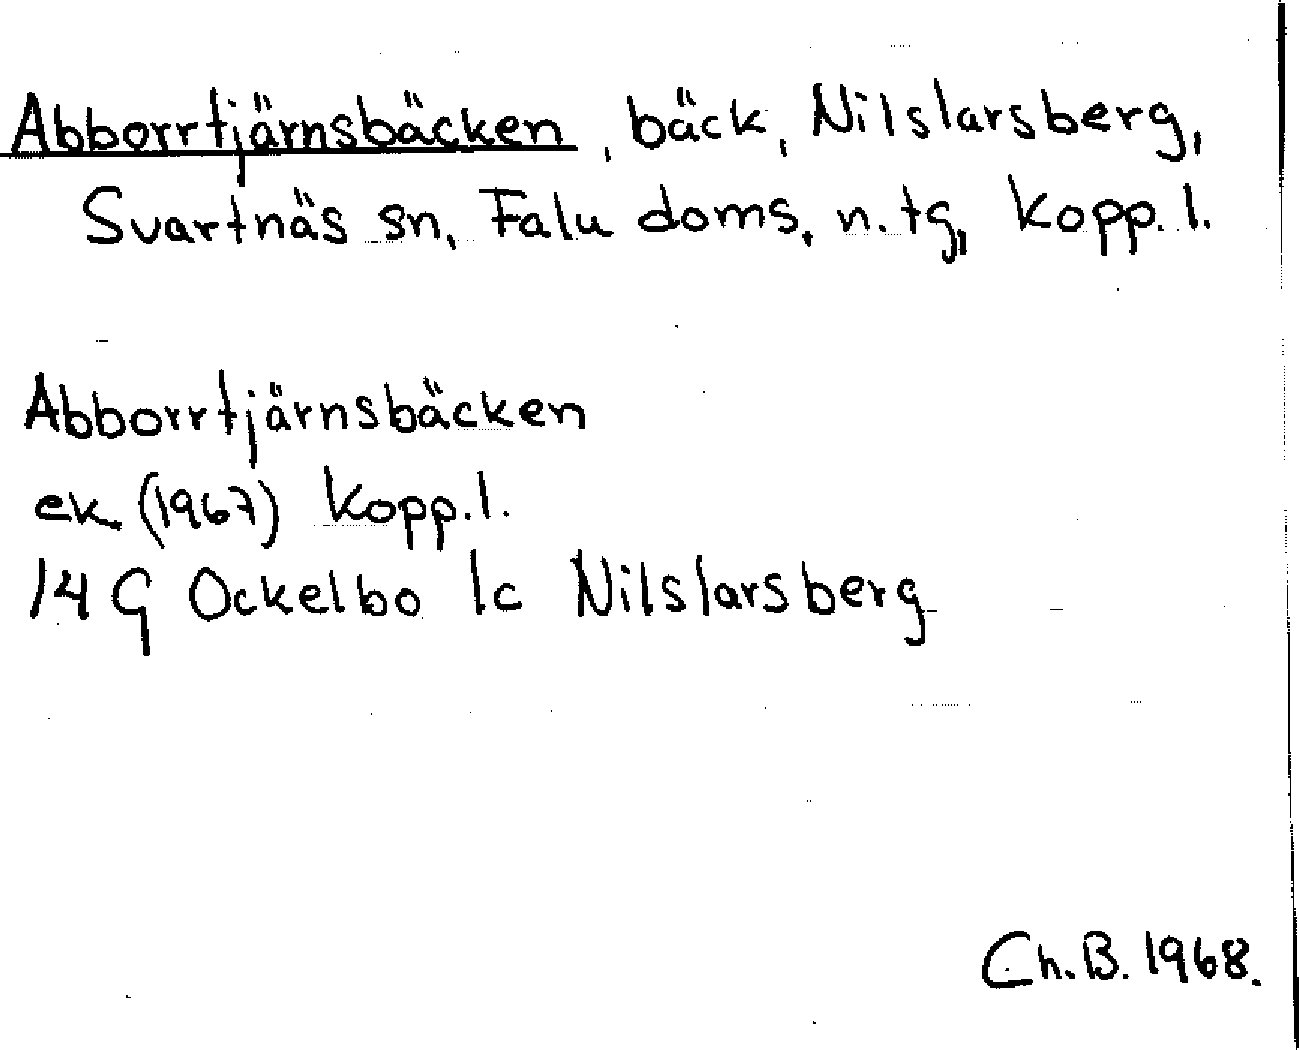 Abborrtjärnsbäcken, bäck, Nilslarsberg,
Svartnäs sn, Falu doms, n. tg, Kopp. l.
Abborrtjärnsbäcken
ek (1967) Kopp. l.
14 G Ockelbo 1c Nilslarsberg
Ch. B. 1968.